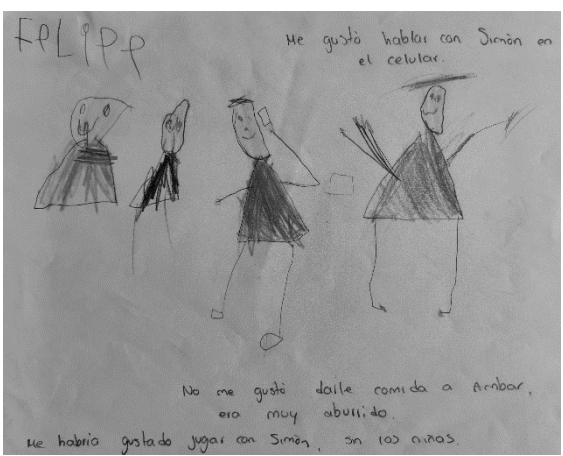 FELIPE
Me gustó hablar con Simón en
el celular.
No me gustó darle comida a Ambar,
era muy aburrido.
Me habría gustado jugar con Simón, sin los niños.